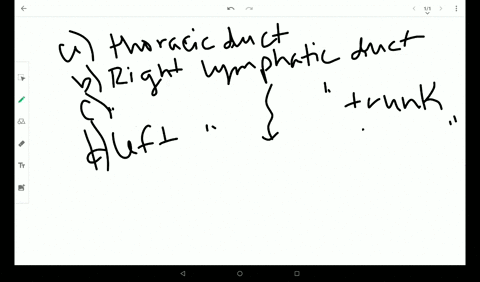 a) thoracic duct
b) Right lymphatic duct
c) " " trunk
d) left " "